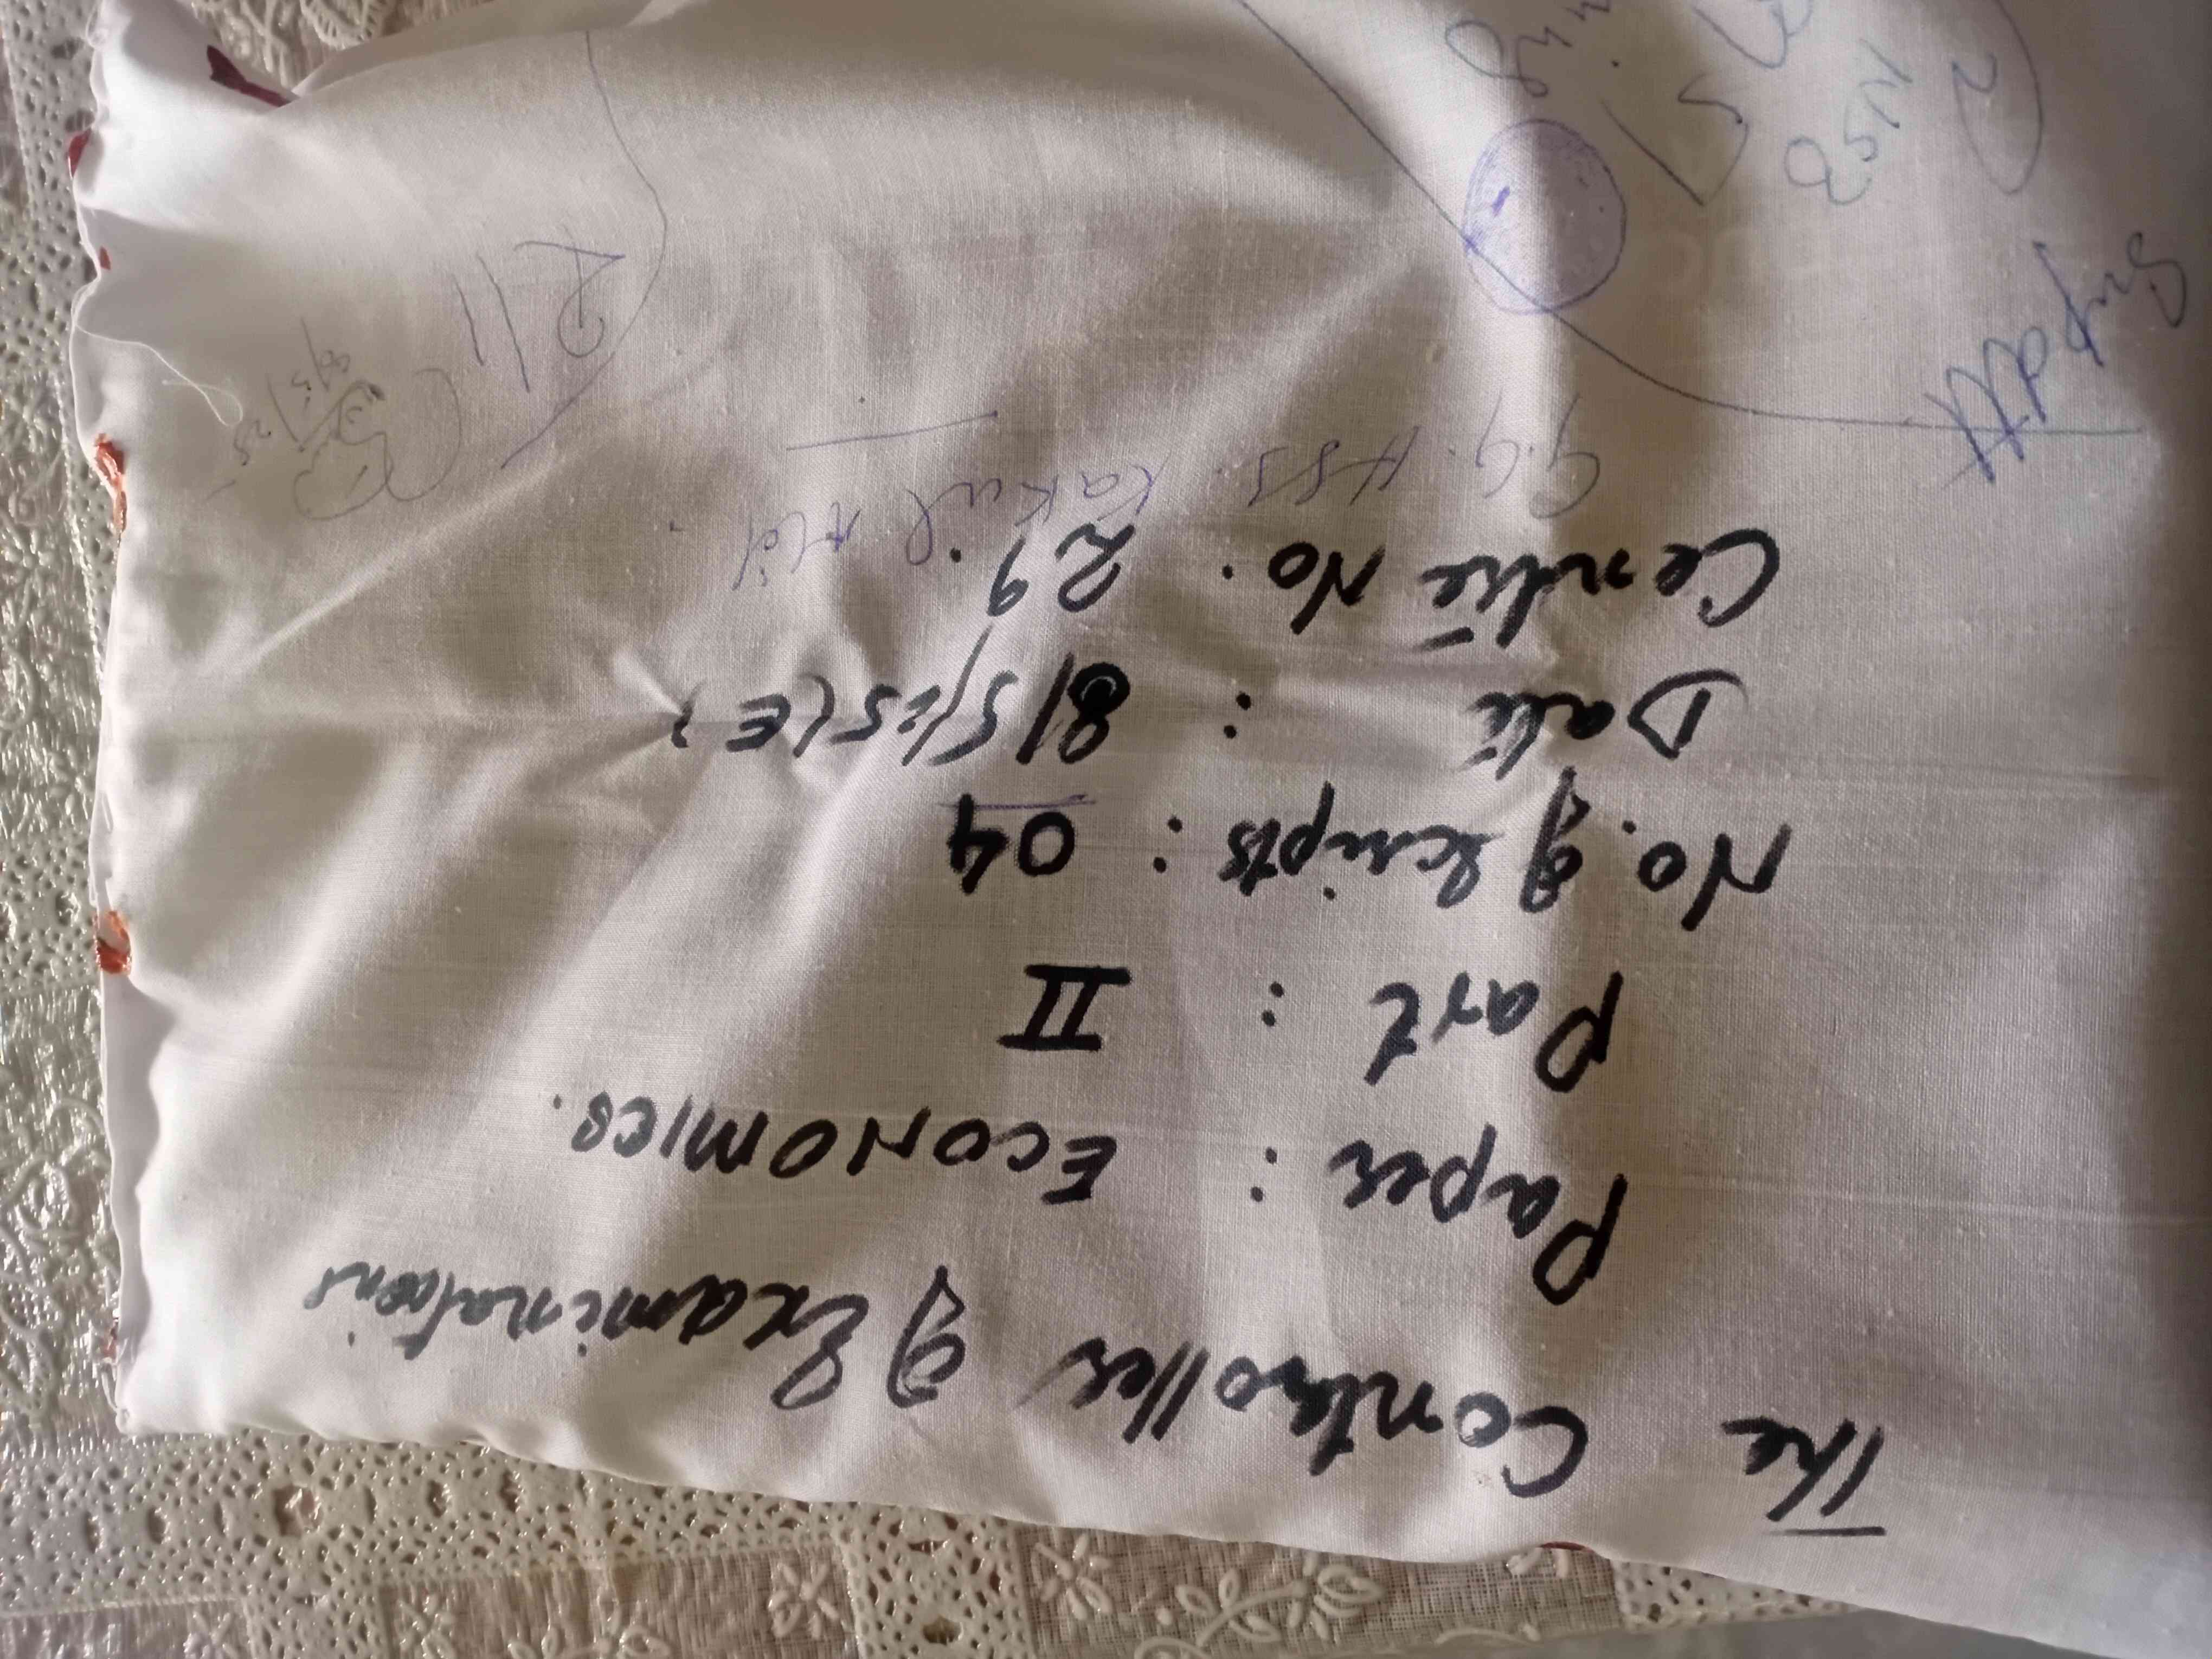 The Controller of Examinations
Paper : ECONOMICS.
Part : II
No. of Scripts : 04
Date : 8/5/25(E)
Centre No. 29.
G.G. HSS. Kakul Atd.
Supdtt
R11